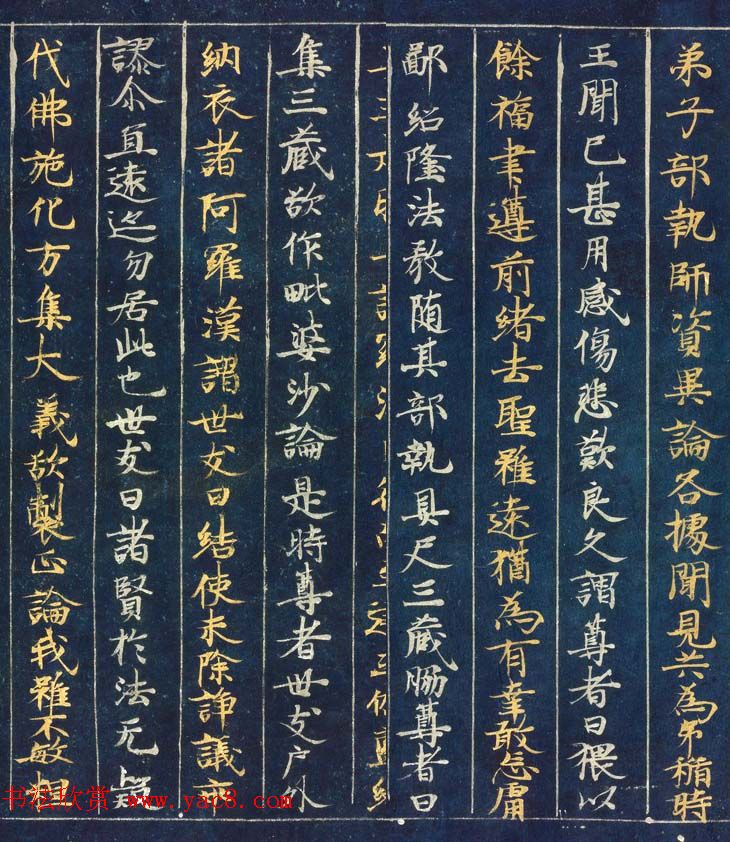 弟子部執師資異論各據聞見共為矛楯時
王聞已甚用感傷悲歎良久謂尊者曰猥以
餘福聿遵前緒去聖雖遠猶為有幸敢忘庸
鄙紹隆法教随其部執具尺三藏脇尊者曰
集三藏欲作毗婆沙論是時尊者世友户外
納衣諸阿羅漢謂世友曰結使未除諍議乖
謬尒宜遠迹勿居此也世友曰諸賢於法无疑
代佛施化方集大義欲製正論我雖不敏粗
书法欣赏 www.yac8.com